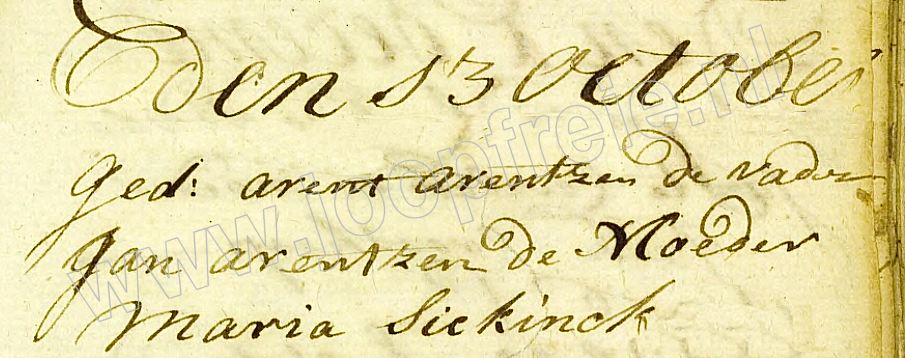 den 13 October
Ged: arent arentzen de vader
Jan arentzen de Moeder
Maria Siekinck
www.loopfreje.nl